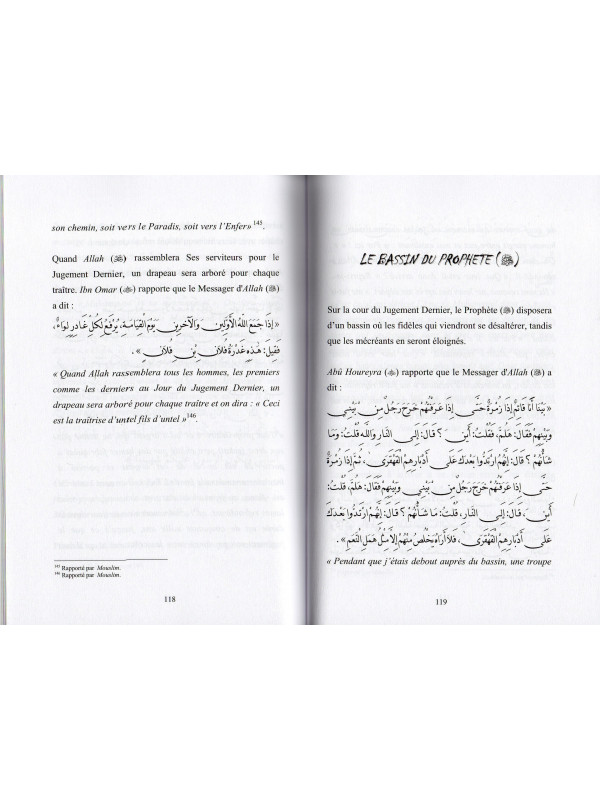 son chemin, soit vers le Paradis, soit vers l'Enfer» 145.
Quand Allah (ﷻ) rassemblera Ses serviteurs pour le
Jugement Dernier, un drapeau sera arboré pour chaque
traître. Ibn Omar () rapporte que le Messager d'Allah (ﷺ)
a dit :
«إِذَا جَمَعَ اللهُ الأَوَّلِينَ وَالآخِرِينَ يَوْمَ الْقِيَامَةِ، يُرْفَعُ لِكُلِّ غَادِرٍ لِوَاءٌ،
فَقِيلَ: هَذِهِ غَدْرَةُ فُلاَنِ بْنِ فُلاَنٍ».
« Quand Allah rassemblera tous les hommes, les premiers
comme les derniers au Jour du Jugement Dernier, un
drapeau sera arboré pour chaque traître et on dira : « Ceci
est la traîtrise d'untel fils d'untel »146.
145 Rapporté par Mouslim.
146 Rapporté par Mouslim.
118
LE BASSIN DU PROPHETE (ﷺ)
Sur la cour du Jugement Dernier, le Prophète (ﷺ) disposera
d'un bassin où les fidèles qui viendront se désaltérer, tandis
que les mécréants en seront éloignés.
Abû Houreyra () rapporte que le Messager d'Allah (ﷺ) a
dit :
«بَيْنَا أَنَا قَائِمٌ إِذَا زُمْرَةٌ حَتَّى إِذَا عَرَفْتُهُمْ خَرَجَ رَجُلٌ مِنْ بَيْنِي
وَبَيْنِهِمْ فَقَالَ: هَلُمَّ، فَقُلْتُ: أَيْنَ؟ قَالَ: إِلَى النَّارِ وَاللهِ قُلْتُ: وَمَا
شَأْنُهُمْ؟ قَالَ: إِنَّهُمْ ارْتَدُّوا بَعْدَكَ عَلَى أَدْبَارِهِمْ الْقَهْقَرَى، ثُمَّ إِذَا زُمْرَةٌ
حَتَّى إِذَا عَرَفْتُهُمْ خَرَجَ رَجُلٌ مِنْ بَيْنِي وَبَيْنِهِمْ فَقَالَ: هَلُمَّ، قُلْتُ:
أَيْنَ، قَالَ: إِلَى النَّارِ، قُلْتُ: مَا شَأْنُهُمْ؟ قَالَ: إِنَّهُمْ ارْتَدُّوا بَعْدَكَ
عَلَى أَدْبَارِهِمْ الْقَهْقَرَى، فَلاَ أَرَاهُ يَخْلُصُ مِنْهُمْ إِلاَّ مِثْلُ هَمَلِ النَّعَمِ».
« Pendant que j'étais debout auprès du bassin, une troupe
119